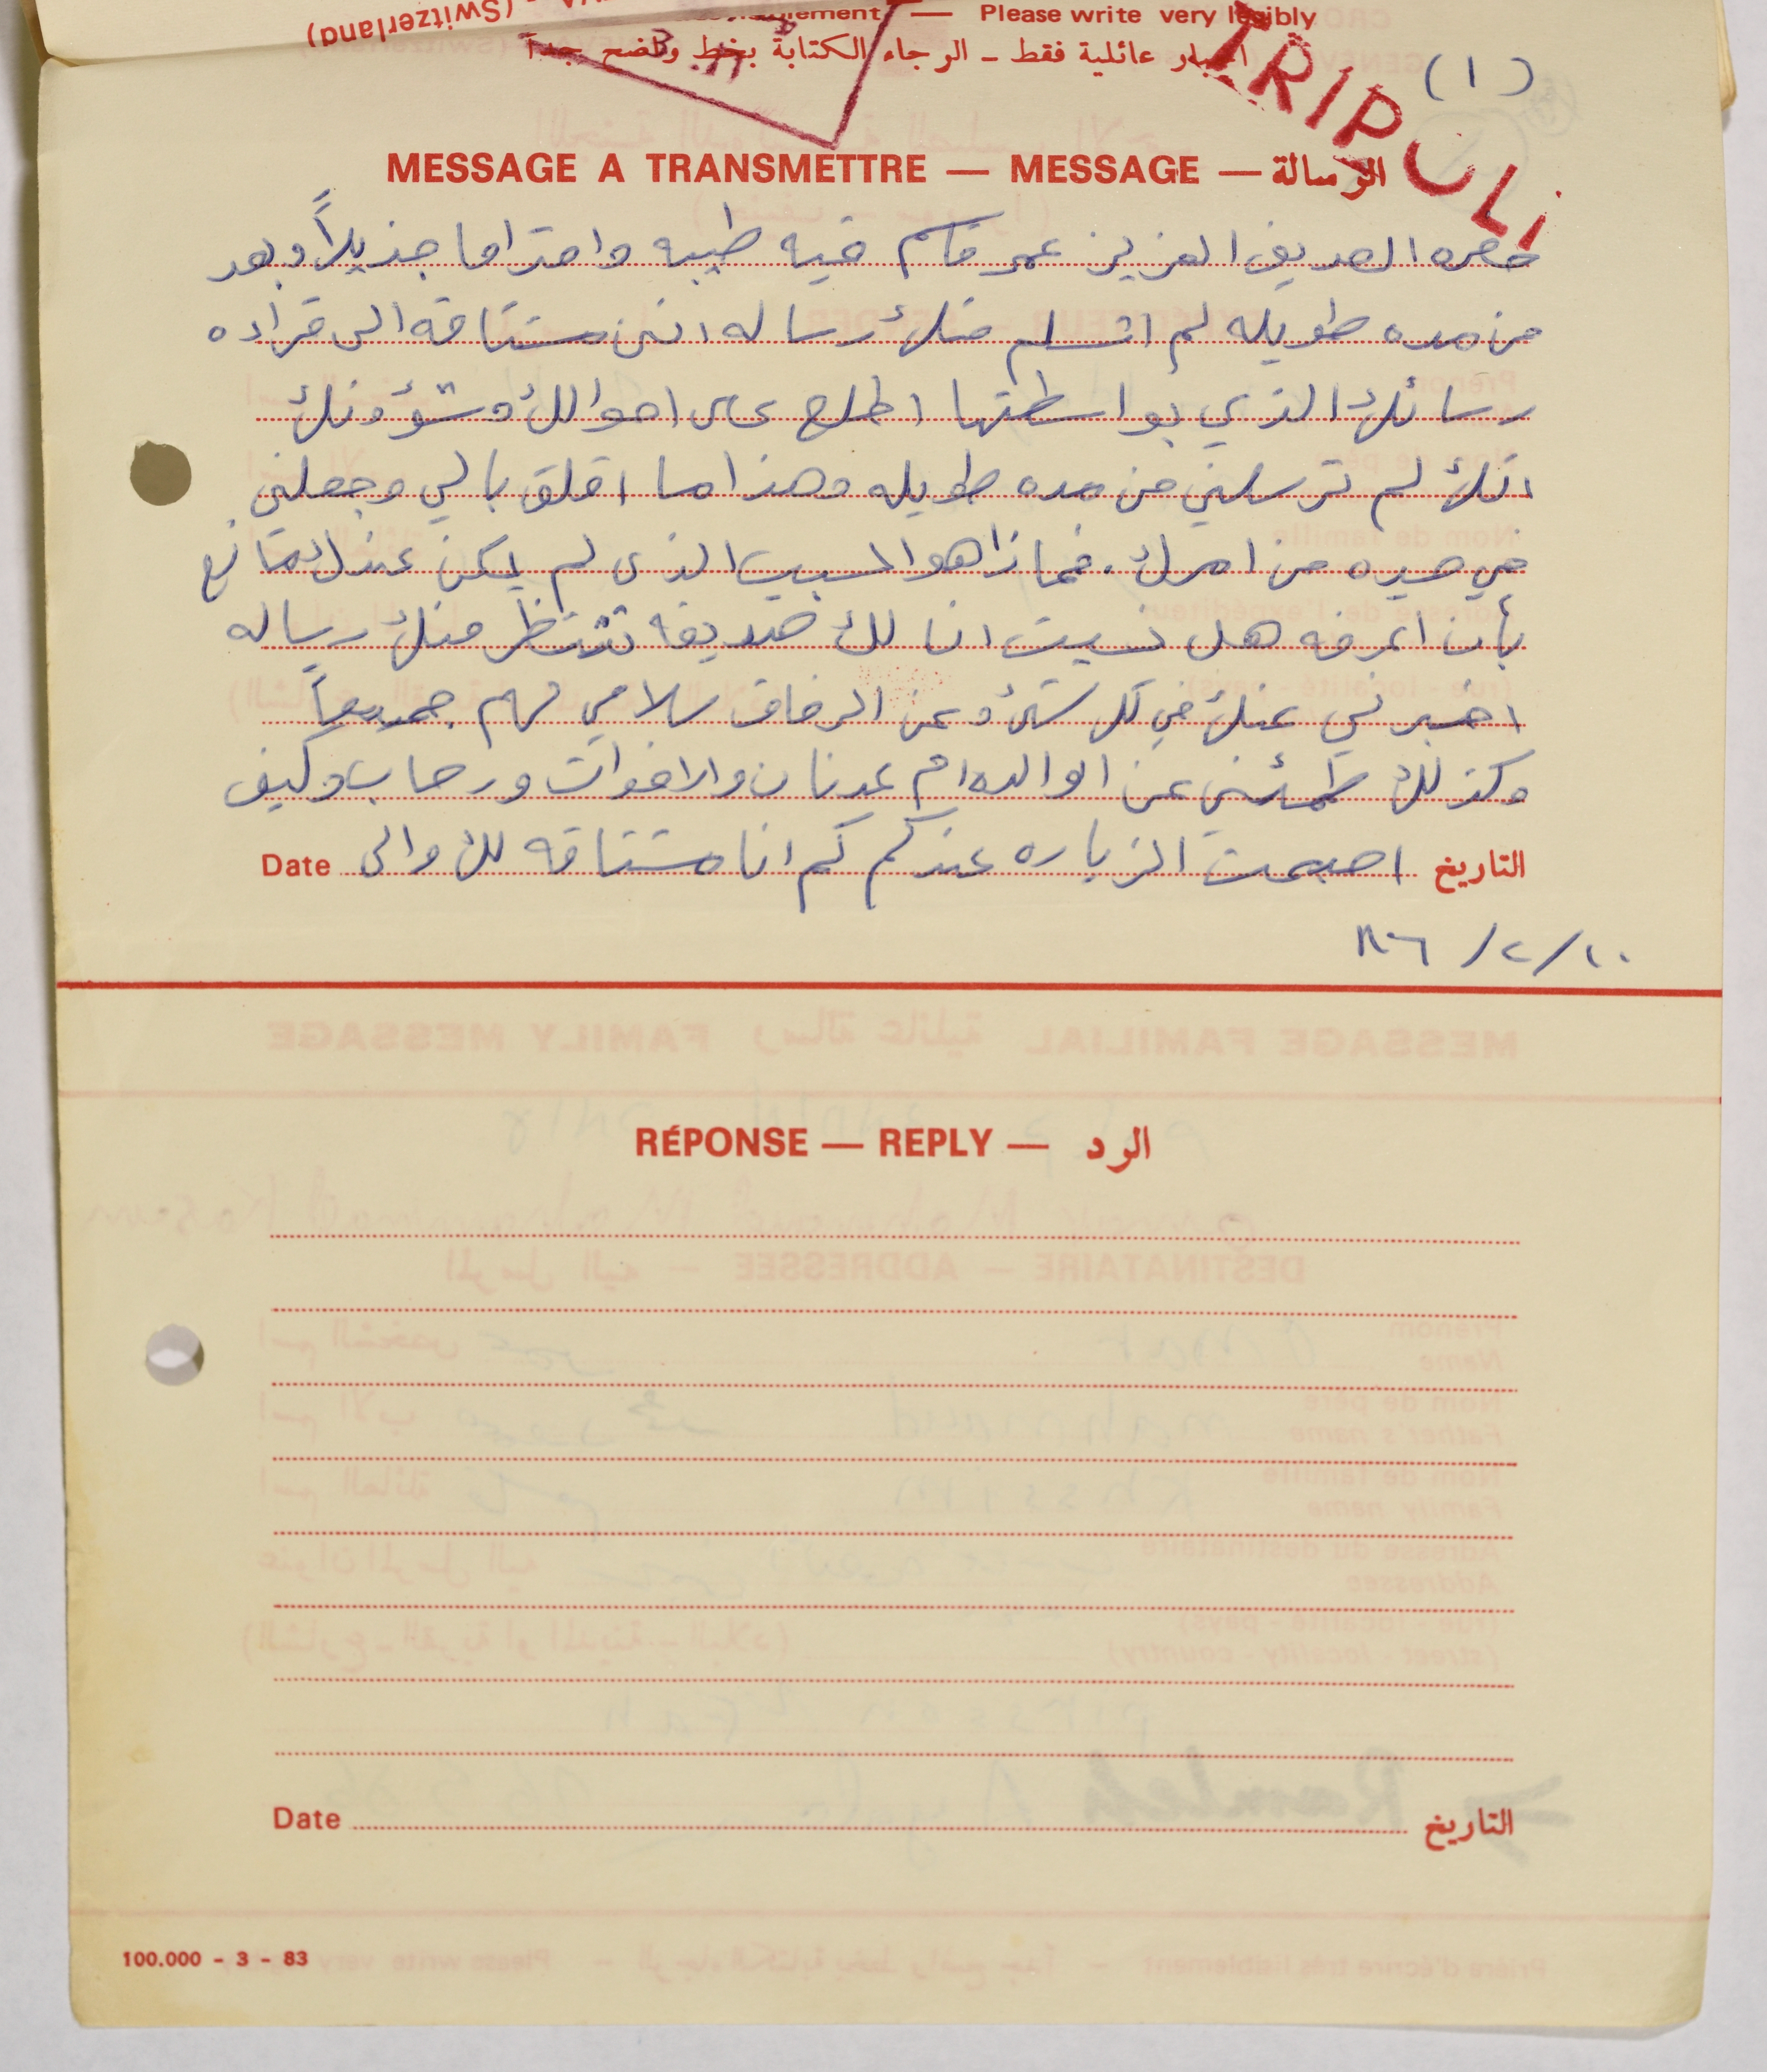 (Switzerland)
Please write very legibly
اخبار عائلية فقط - الرجاء الكتابة بخط واضح جداً
TRIPOLI
(١)
MESSAGE A TRANSMETTRE — MESSAGE — الرسالة
حضره الصديق العزيز عمر قاسم تحيه طيبه واحتراما جذيلاً وبعد
من مده طويله لم اتسلم منك رساله انني مشتاقه الى قراءه
رسائلك الذي بواسطتها اطلع على احوالك وشؤونك
انك لم ترسلني من مده طويله وهذا ما اقلق بالي وجعلني
في حيره من امرك . فماذا هو السبب الذي لم يكن عندك مانع
بأن اعرفه هل نسيت انا لك صديقه تنتظر منك رساله
اخبرني عنك في كل شئ وعن الرفاق سلامي لهم جميعاً
وكذلك طمئني عن الوالده ام عدنان والاخوات ورحاب وكيف
التاريخ اصبحت الزياره عندكم كم انا مشتاقه لك والى Date
١٠/٢/٨٦
RÉPONSE — REPLY — الرد
Date التاريخ
100.000 - 3 - 83